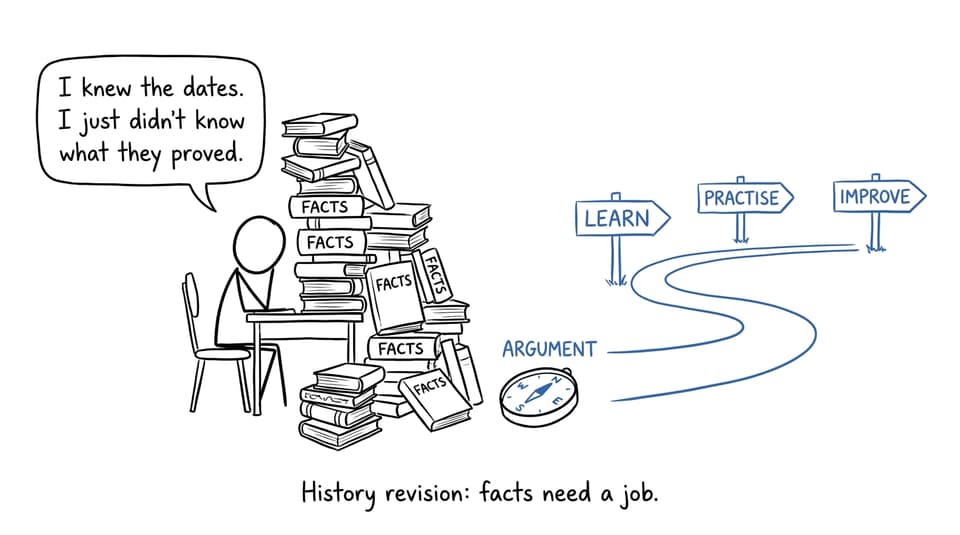 I knew the dates.
I just didn't know
what they proved.
FACTS
FACTS
FACTS
FACTS
FACTS
FACTS
LEARN
PRACTISE
IMPROVE
ARGUMENT
N
E
S
W
History revision: facts need a job.